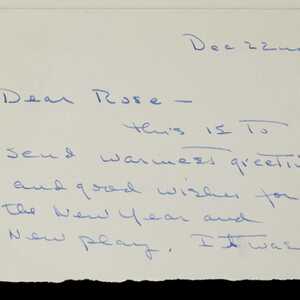 Dec 22nd
Dear Rose —
this is to
send warmest
and good wishes for
the New Year and
New play. It was